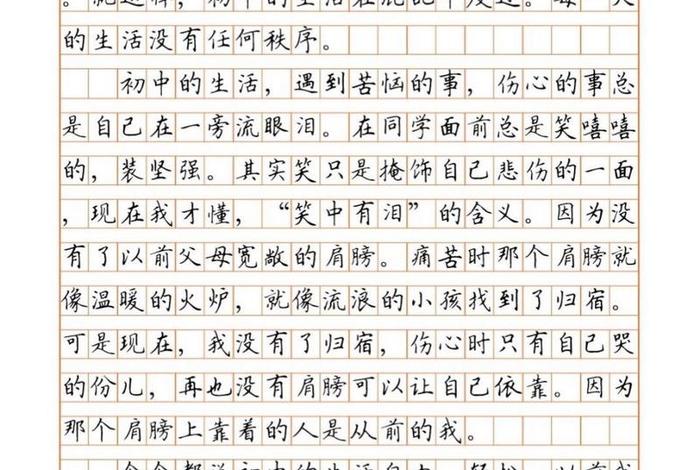 。就这样，初中的生活在混记中度过。每一天
的生活没有任何秩序。
初中的生活，遇到苦恼的事，伤心的事总
是自己在一旁流眼泪。在同学面前总是笑嘻嘻
的，装坚强。其实笑只是掩饰自己悲伤的一面
，现在我才懂，“笑中有泪”的含义。因为没
有了以前父母宽敞的肩膀。痛苦时那个肩膀就
像温暖的火炉，就像流浪的小孩找到了归宿。
可是现在，我没有了归宿，伤心时只有自己哭
的份儿，再也没有肩膀可以让自己依靠。因为
那个肩膀上靠着的人是从前的我。
个个都说初中的生活自由、轻松，以前我